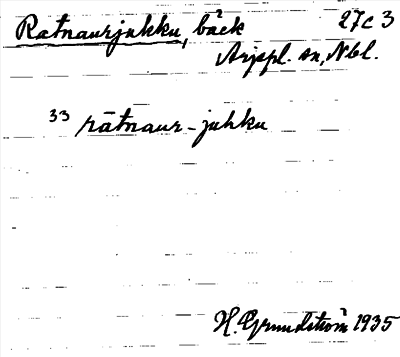 Ratnaurjukku, bäck 27c3
Arjepl. sn, Nbl.
33 rātnaur-juhku
H. Grundström 1935